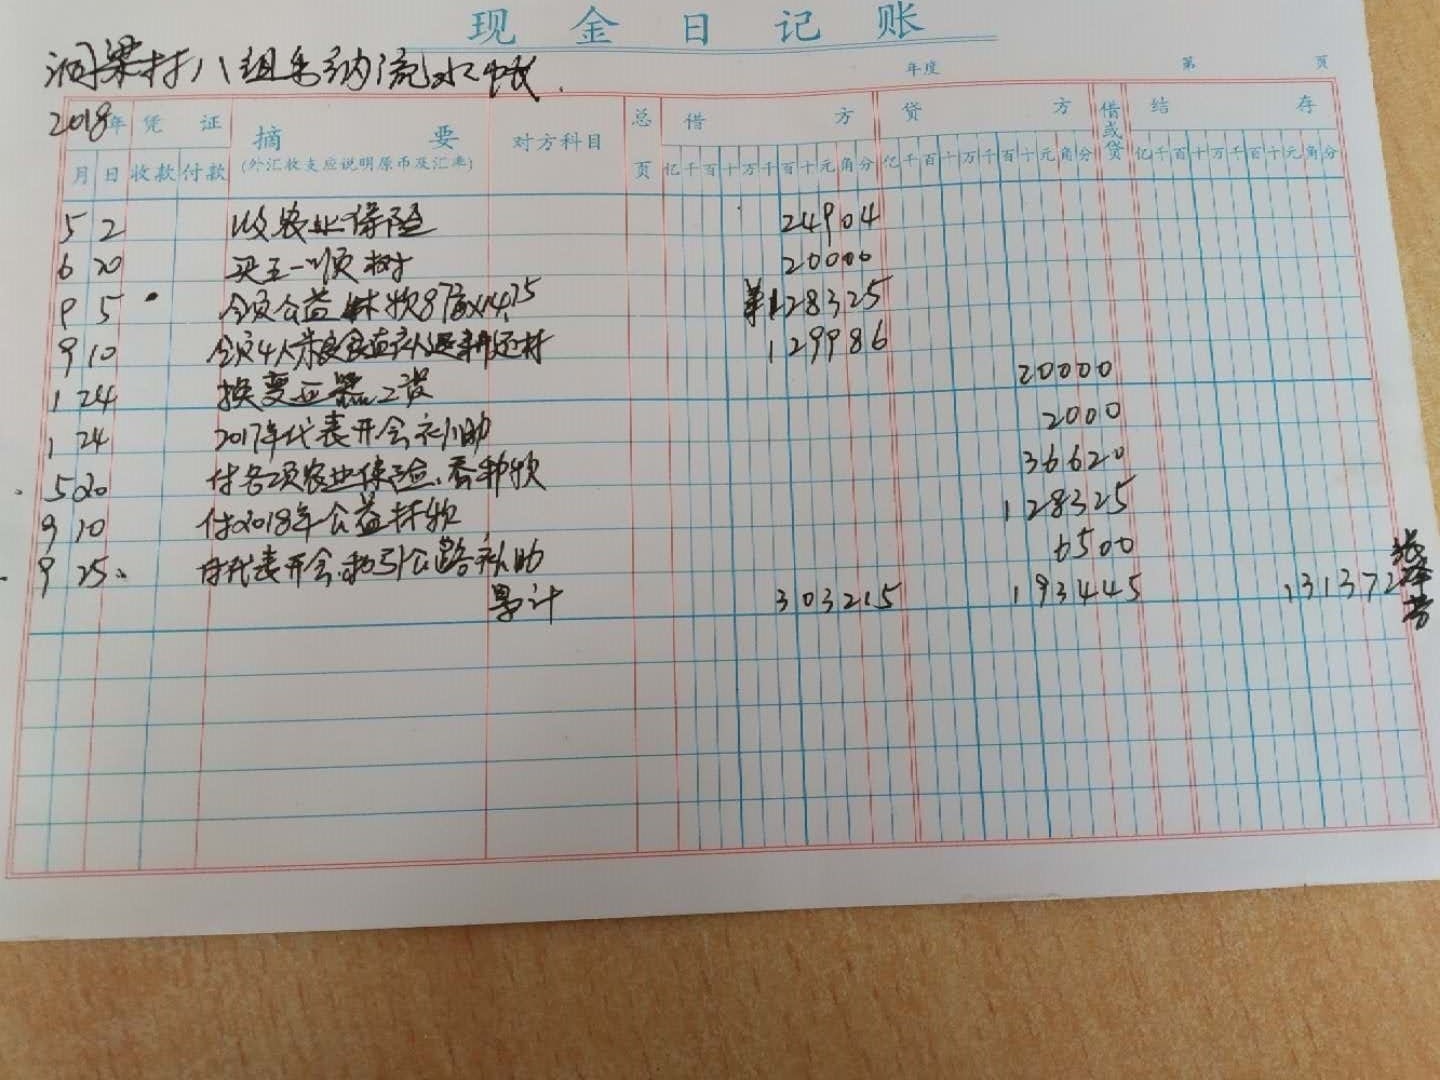 现金日记账
洞梁村八组出纳流水帐.
年度 第 页
2018年 凭证 摘要 对方科目 总页 借方 贷方 借或贷 结存
月 日 收款 付款 (外汇收支应说明原币及汇率) 亿千百十万千百十元角分 亿千百十万千百十元角分 亿千百十万千百十元角分
5 2 收农业保险 24904
6 20 买王一顺树 20000
9 5 领公益林款 ¥128325
9 10 领4人 129986
1 24 换变压器工资 20000
1 24 2017年代表开会补助 2000
5 20 付各项农业保险、 款 36620
9 10 付2018年公益林款 128325
9 25 付代表开会、 引公路补助 6500
累计 303215 193445 131372